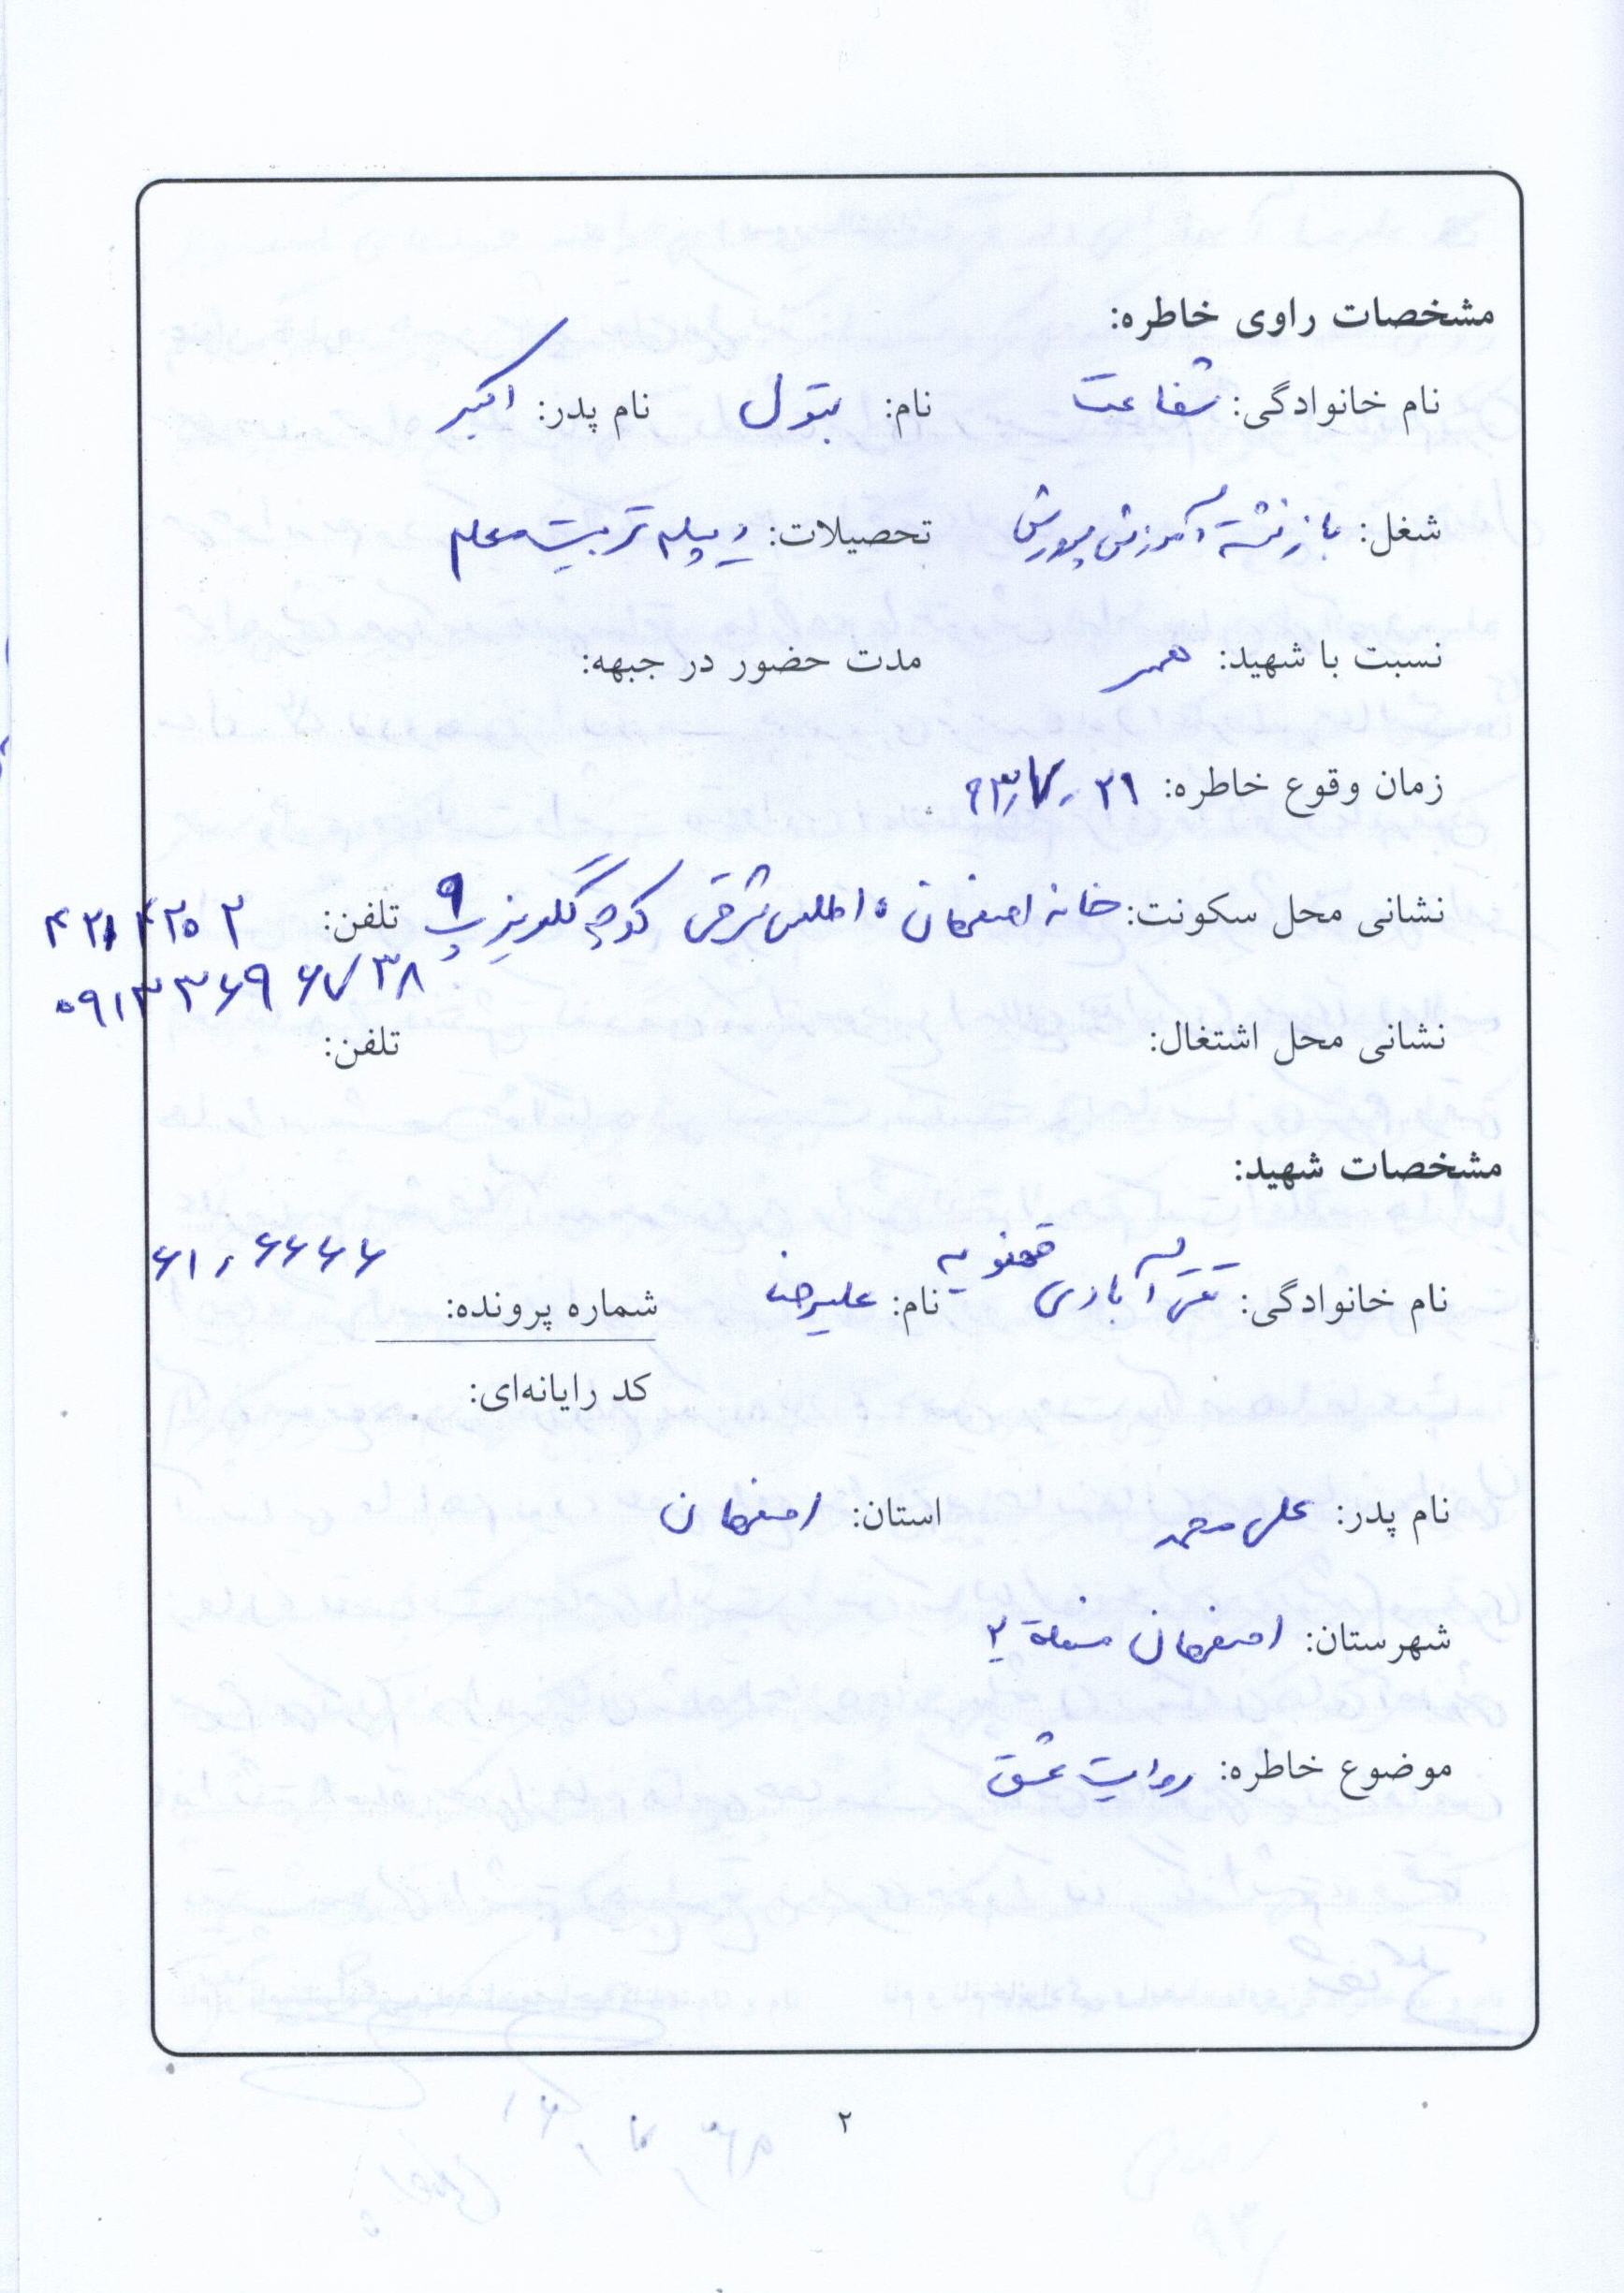 مشخصات راوی خاطره:
نام خانوادگی: شفاعت نام: بتول نام پدر: اکبر
شغل: بازنشسته آموزش پرورش تحصیلات: دیپلم تربیت معلم
نسبت با شهید: همسر مدت حضور در جبهه:
زمان وقوع خاطره: ۲۱ ۹۳/۷
نشانی محل سکونت: خانه اصفهان اطلس شرقی کوچه گلریز پ ۹ تلفن: ۴۲۱۴۲۵۲
۰۹۱۳۳۶۹۶۷۳۸
نشانی محل اشتغال: تلفن:
مشخصات شهید:
نام خانوادگی: تقی آبادی قهنویه نام: علیرضا شماره پرونده: ۶۱۰۶۶۶۶
کد رایانه‌ای:
نام پدر: علی محمد استان: اصفهان
شهرستان: اصفهان منطقه ۲
موضوع خاطره: روایت عشق
۲